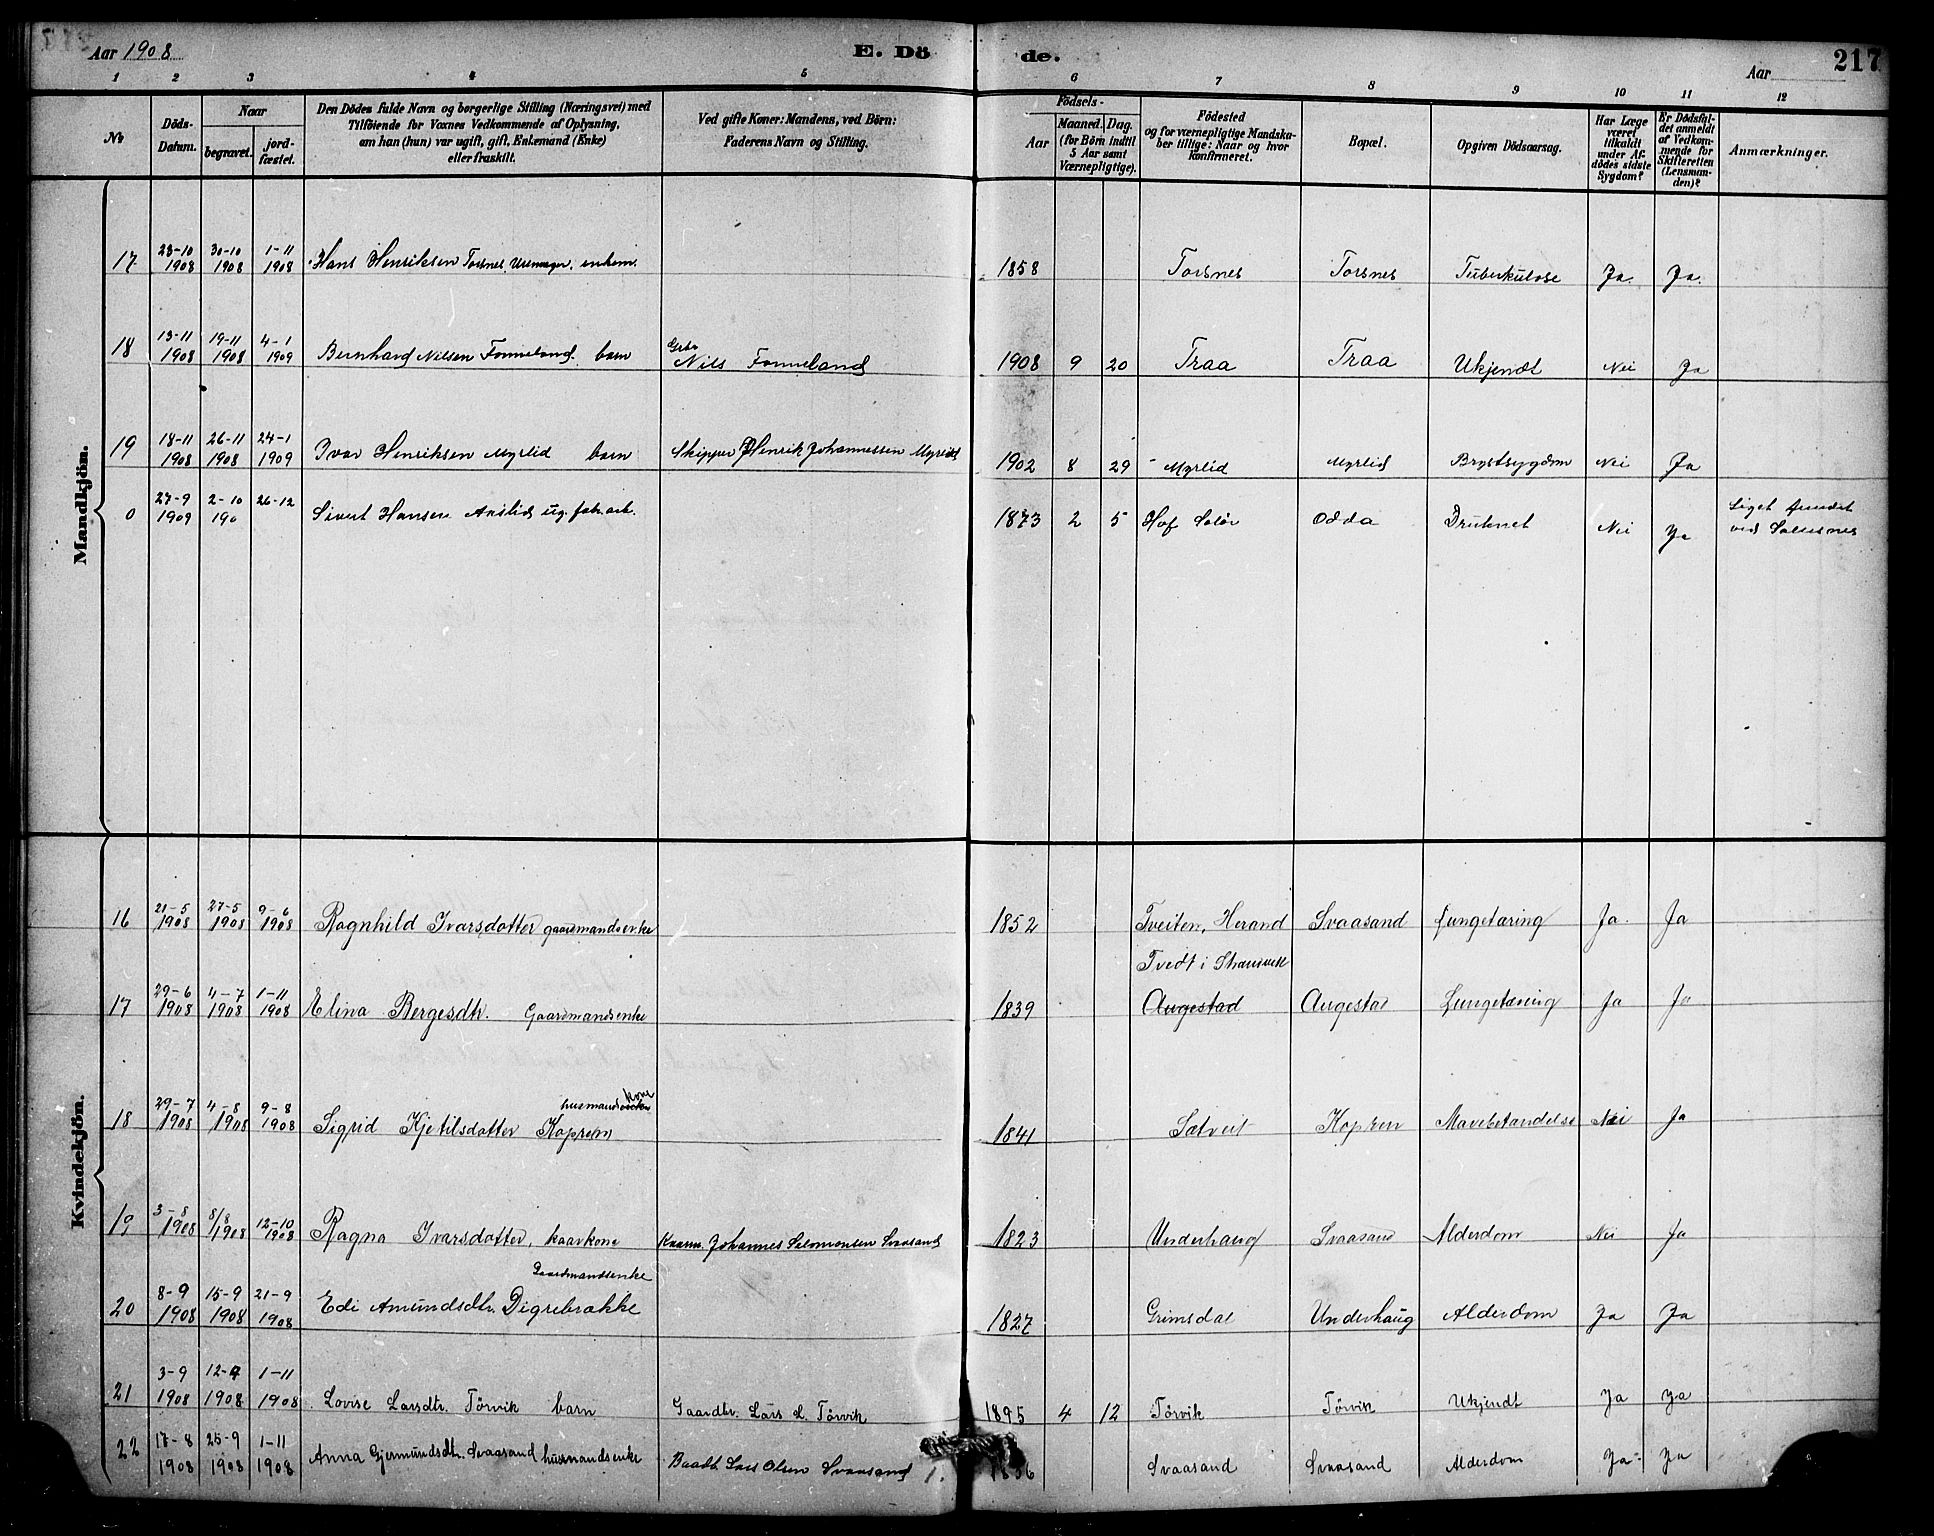 Aar 1908 E. Dö de. Aar 217
1 2 3 4 5 6 7 8 9 10 11 12
№ Döds-Datum. Naar begravet. jord-fæstet. Den Dödes fulde Navn og borgerlige Stilling (Næringsvei) med Tilföiende for Voxnes Vedkommende af Oplysning, om han (hun) var ugift, gift, Enkemand (Enke) eller fraskilt. Ved gifte Koner: Mandens, ved Börn: Faderens Navn og Stilling. Födsels- Aar Maaned. Dag. (for Börn indtil 5 Aar samt Værnepligtige). Födested og for værnepligtige Mandskaber tillige: Naar og hvor konfirmeret. Bopæl. Opgiven Dödsaarsag. Har Læge været tilkaldt under Afdödes sidste Sygdom? Er Dödsfaldet anmeldt af Vedkommende for Skifteretten (Lensmanden)? Anmærkninger.
Mandkjön.
17 23-10 1908 30-10 1908 1-11 1908 Hans Henriksen Torsnes, Urmager, enkem. 1858 Torsnes Torsnes Tuberkulose Ja. Ja.
18 13-11 1908 19-11 1908 4-1 1909 Bernhard Nilsen Fonneland. barn Gbr. Nils Fonneland 1908 9 20 Traa Traa Ukjendt Nei Ja
19 18-11 1908 26-11 1908 24-1 1909 Ivar Henriksen Myrlid barn Skipper Henrik Johannessen Myrlid 1902 8 29 Myrlid Myrlid Brystsygdom Nei Ja
0 27-9 1909 2-10 190 26-12 Sivert Hansen Aaslid, ug. fabr.arb. 1873 2 5 Hof Solör Odda Druknet Nei Ja Liget fundet
ved Solesnes
Kvindekjön.
16 21-5 1908 27-5 1908 9-6 1908 Ragnhild Ivarsdatter gaardmandsenke 1852 Tveiten, Herand Svaasand Lungetæring Ja. Ja
Tvedt i Strandvik
17 29-6 1908 4-7 1908 1-11 1908 Elina Bergesdtr. Gaardmandsenke 1839 Augestad Augestad Lungetæring Ja Ja
kone
husmandsenke
18 29-7 1908 4-8 1908 9-8 1908 Sigrid Kjetilsdatter Kopren 1841 Sætveit Kopren Mavebetændelse Nei Ja
19 3-8 1908 8/8 1908 12-10 1908 Ragna Ivarsdatter, kaarkone Kaarm. Johannes Salomonsen Svaasand 1823 Underhaug Svaasand Alderdom Nei Ja
Gaardmandsenke
20 8-9 1908 15-9 1908 21-9 1908 Edi Amundsdtr. Digrebrække 1827 Grimsdal Underhaug Alderdom Ja Ja
21 3-9 1908 12-9 1908 1-11 1908 Lovise Larsdtr. Törvik barn Gaardbr. Lars L. Törvik 1895 4 12 Törvik Törvik Ukjendt Ja Ja
22 17-8 1908 25-9 1908 1-11 1908 Anna Gjermundsdtr. Svaasand husmandsenke Baadb. Lars Olsen Svaasand 1. 1836 Svaasand Svaasand Alderdom Ja Ja